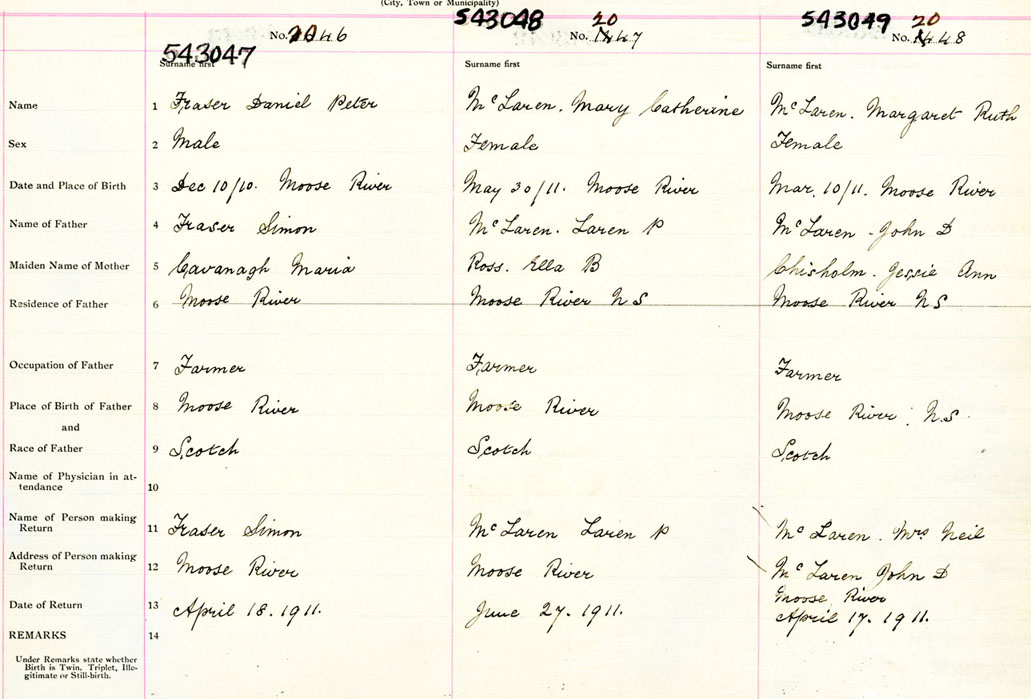 (City, Town or Municipality)
543047 543048 543049
No. 2046 No. 2047 No. 2048
Surname first Surname first Surname first
Name 1 Fraser Daniel Peter McLaren. Mary Catherine McLaren. Margaret Ruth
Sex 2 Male Female Female
Date and Place of Birth 3 Dec 10/10. Moose River May 30/11. Moose River Mar. 10/11. Moose River
Name of Father 4 Fraser Simon McLaren. Laren P McLaren - John D
Maiden Name of Mother 5 Cavanagh Maria Ross. Ella B Chisholm - Jessie Ann
Residence of Father 6 Moose River Moose River N S Moose River N S
Occupation of Father 7 Farmer Farmer Farmer
Place of Birth of Father 8 Moose River Moose River Moose River. N.S.
and
Race of Father 9 Scotch Scotch Scotch
Name of Physician in at-
tendance 10
Name of Person making
Return 11 Fraser Simon McLaren Laren P McLaren. Mrs Neil
Address of Person making
Return 12 Moose River Moose River McLaren John D
Moose River
Date of Return 13 April 18. 1911. June 27. 1911. April 17. 1911.
REMARKS 14
Under Remarks state whether
Birth is Twin, Triplet, Ille-
gitimate or Still-birth.